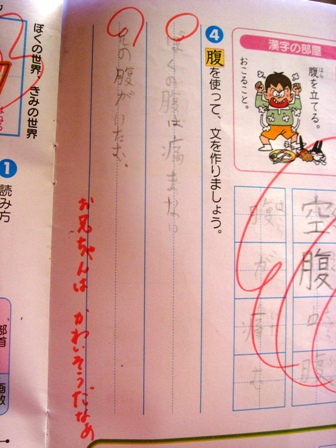 漢字の部屋
腹を立てる。
おこること。
空腹
腹が痛む
4 腹を使って、文を作りましょう。
ぼくの腹は痛まない
兄の腹がいたむ。
お兄ちゃんは かわいそうだなあ
ぼくの世界、きみの世界
1 読み方
部首
画数